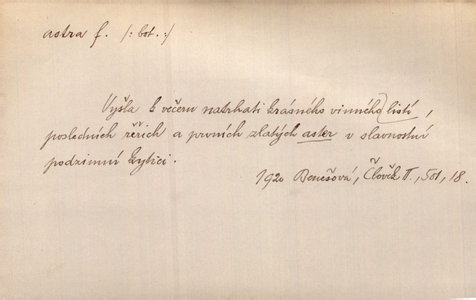 astra f. /: bot. :/
Vyšla k večeru natrhati krásného vinného listí,
posledních řeřich a prvních zlatých aster v slavnostní
podzimní kytici.
1920 Benešová, Člověk II.,